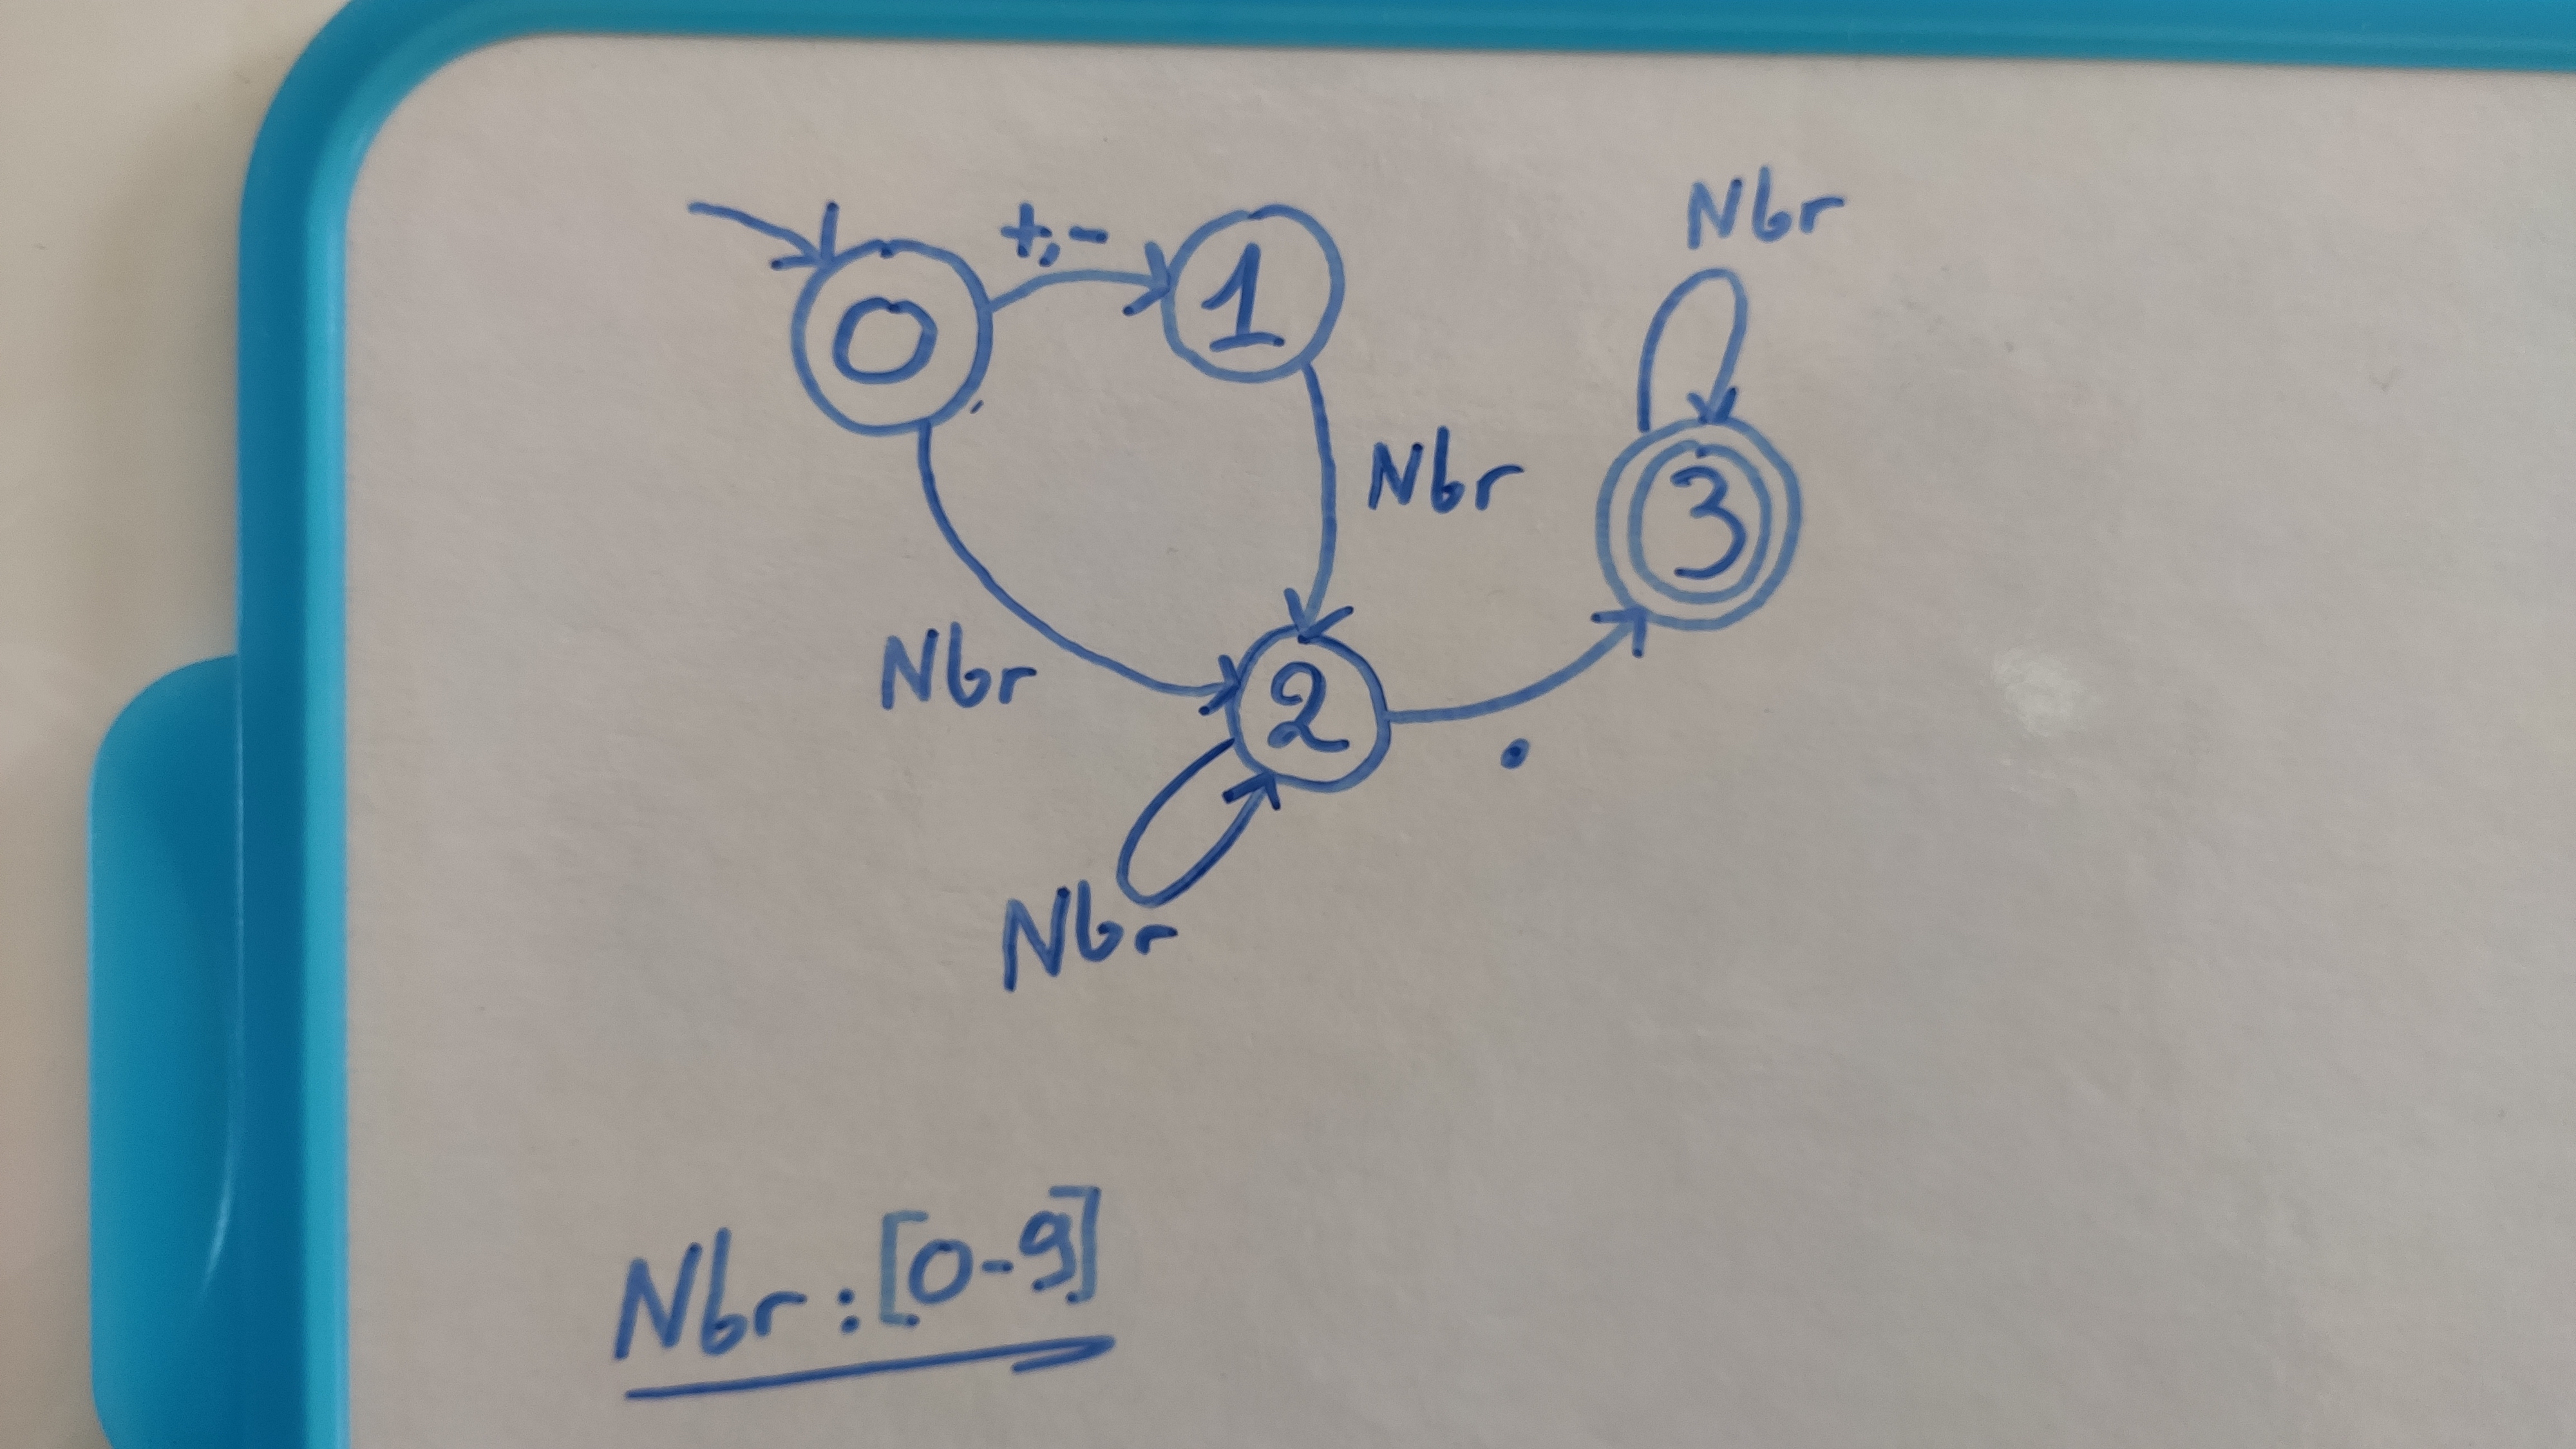 Nbr
+,-
0
1
Nbr
3
Nbr
2
.
Nbr
Nbr : [0-9]